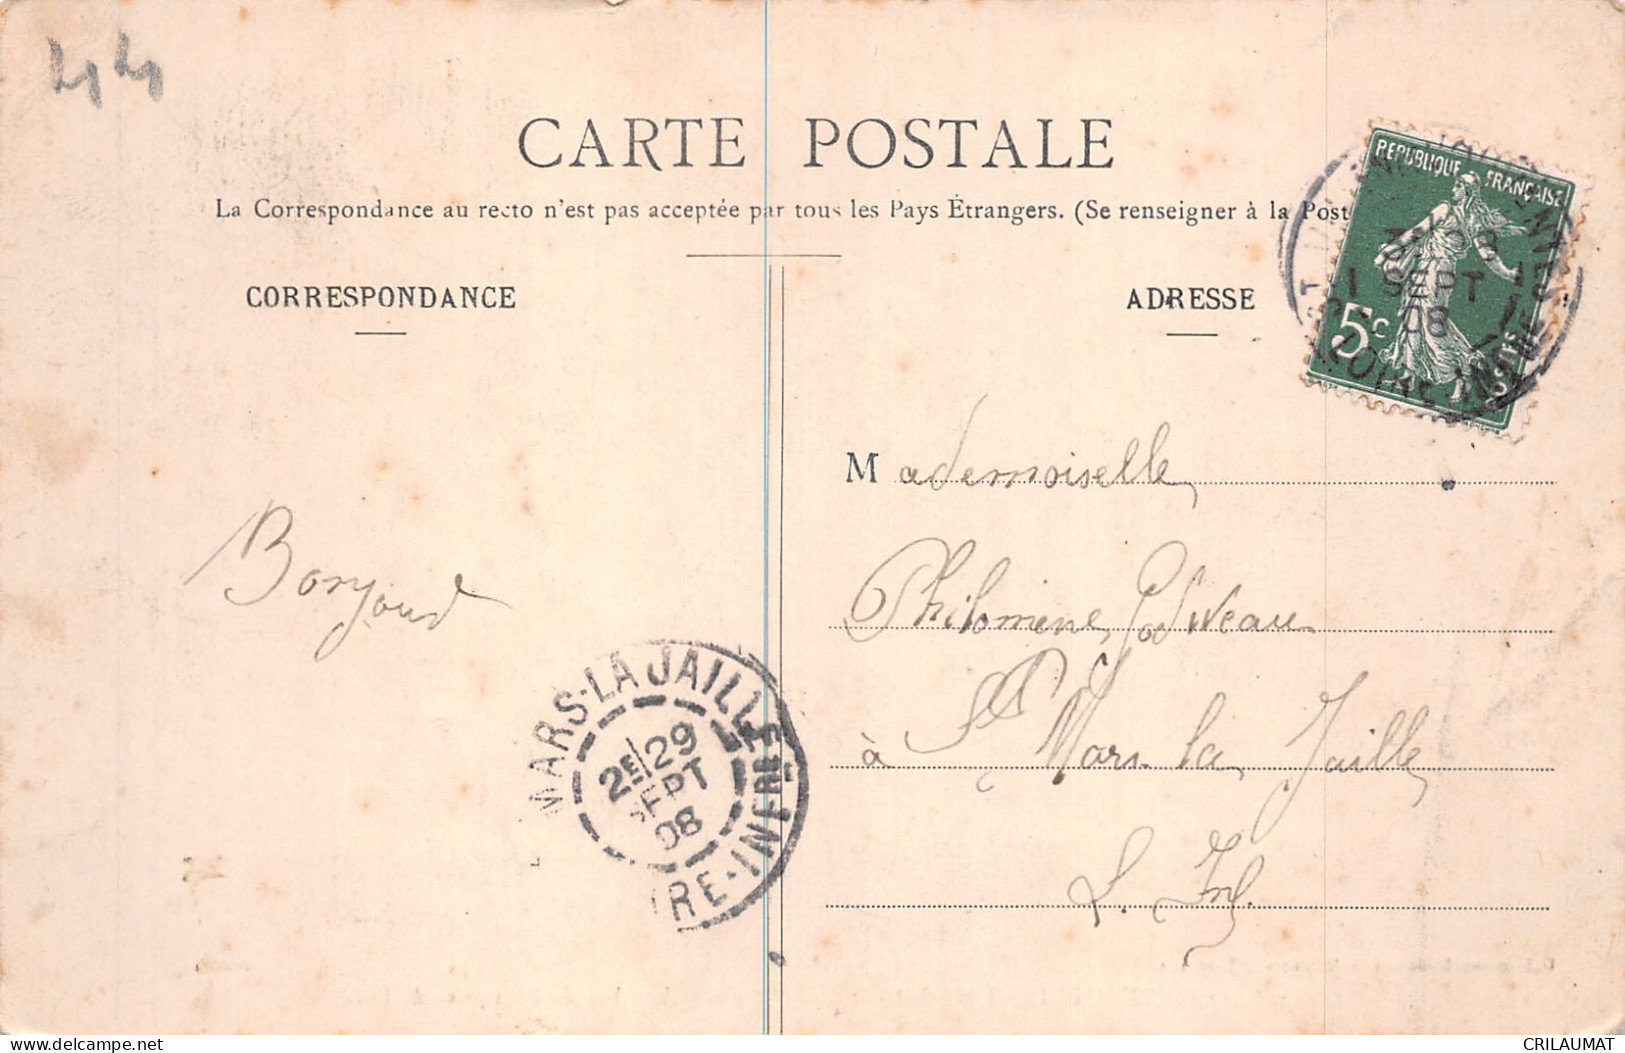 44
CARTE POSTALE
La Correspondance au recto n'est pas acceptée par tous les Pays Étrangers. (Se renseigner à la Post
CORRESPONDANCE
ADRESSE
REPUBLIQUE FRANÇAISE
5c
SEPT
08
Mademoiselle
Philomène
à St Mars la Jaille
L. Inf.
Bonjour
MARS-LA JAILLE
2E 29
SEPT
08
RE-INFRE
CRILAUMAT